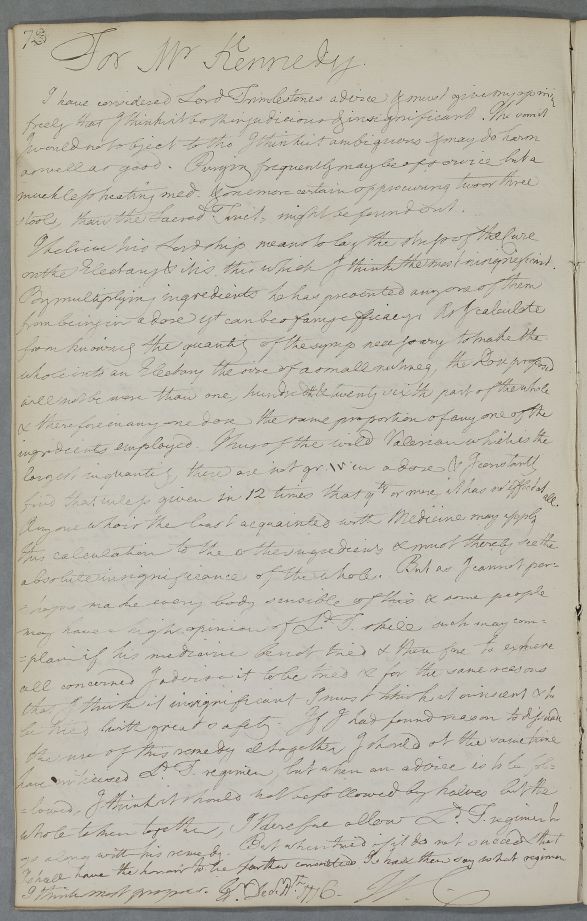 72
For Mr Kennedy.
I have considered Lord Trimlestones advice & must give my opinion
freely that I think it both injudicious & insignificant. The vomit
I would not object to tho I think it ambiguous & may do harm
as well as good. Purging frequently may be of service but a
much less heating med. & one more certain of procuring two or three
stools, than the Sacred Tinct. might be found out.
I believe his Lordship means to lay the stress of the Cure
on the Electuary & it is this which I think the most
By multiplying ingredients he has prevented any one of them
from being in a dose yt can be of any efficacy. As I calculate
from knowing the quantity of the syrup necessary to make the
whole into an Electuary the size of a small nutmeg, the Dose proposed
will not be more than one hundred & twenty sixth part of the whole
& therefore in any one dose the same proportion of any one of the
ingredients employed. Thus of the wild Valerian which is the
largest in quantity there are not gr. IV in a dose & I constantly
find that unless given in 12 times that qty or more, it has no effect at all
Any one who is the least acquainted with Medicine may apply
this calculation to the other ingredients & must thereby see the
absolute insignificance of the whole. But as I cannot per=
=haps make every body sensible of this & some people
may have a high opinion of Ld. T. skill such may com=
=plain if his medicine be not tried & therefore to exoner
all concerned I advise it to be tried & for the same reasons
that I think it insignificant I must think it innocent & to
be tried with great safety. If I had found reason to dissuade
the use of this remedy altogether I should at the same time
have criticised Ld. T. regimen, but when an advice is to be fol=
=lowed, I think it should not be followed by halves but the
whole taken together, I therefore allow Ld. T. regimen to
go along with his remedy. But when tried if it do not succeed & that
I shall have the honour to be farther consulted I shall then say what regimen
I think most proper.